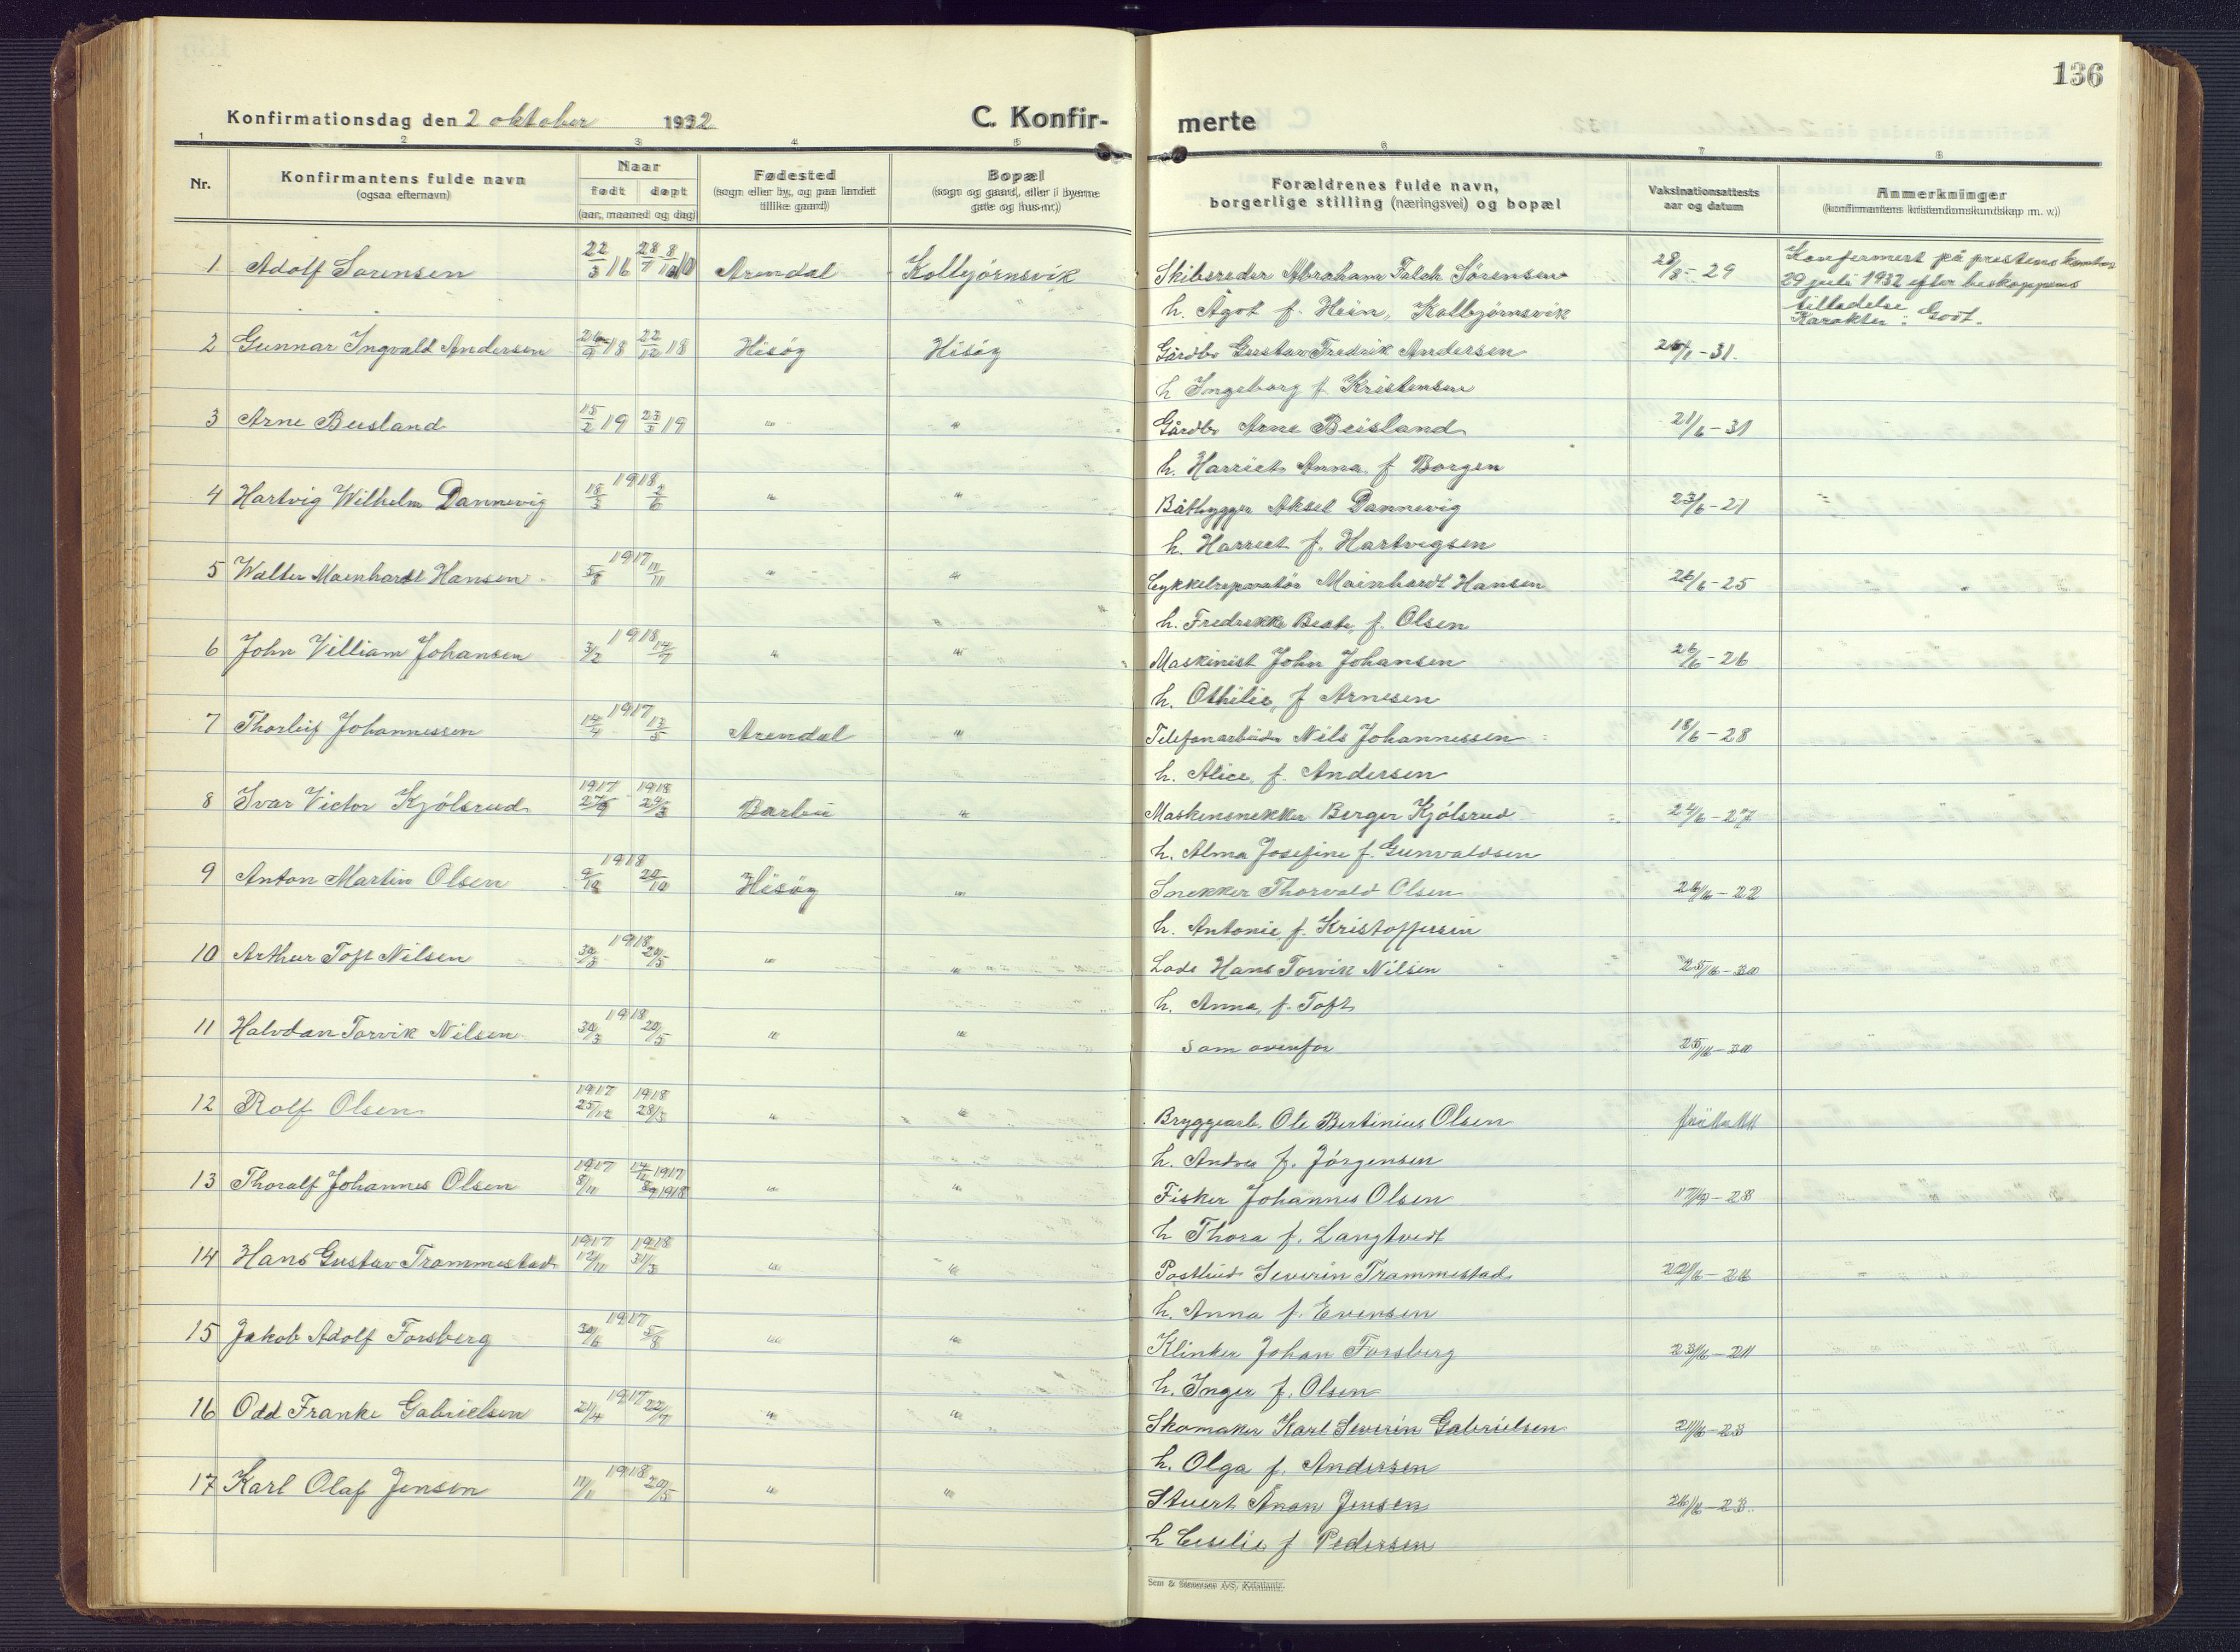 136
Konfirmationsdag den 2 oktober 1932
C. Konfir-
merte
1 2 3 4 5 6 7 8
Nr.
Konfirmantens fulde navn
(ogsaa efternavn)
Naar
født døpt
(aar, maaned og dag)
Fødested
(sogn eller by, og paa landet
tillike gaard)
Bopæl
(sogn og gaard, eller i byerne
gate og hus-nr.)
Forældrenes fulde navn,
borgerlige stilling (næringsvei) og bopæl
Vaksinationsattests
aar og datum
Anmerkninger
(konfirmantens kristendomskundskap m. v.)
1 Adolf Sørensen 22/3 16 Arendal Kolbjørnsvik Skibsreder Abraham Falck Sørensen 28/8 - 29 Konfermert på prestens kontor
h. Ågot f. Hein, Kolbjørnsvik 29 juli 1932 efter biskoppens
tilladelse
Karakter: Godt.
2 Gunnar Ingvald Andersen 26/9 18 22/12 18 Hisøy Hisøy Gårdbr Gustav Fredrik Andersen 26/1 - 31.
h Ingeborg f Kristensen
3 Arne Beisland 15/2 19 23/3 19 " " Gårdbr Arne Beisland 21/6 - 31
h. Harriet Anna f Borgen
4 Hartvig Wilhelm Dannevig 18/3 1918 2/6 " " Båtbygger Aksel Dannevig 23/6 - 21
h. Harriet f. Hartvigsen
5 Walter Mainhardt Hansen 5/8 1917 11/11 " " Cykkelreparatør Mainhardt Hansen 26/6 - 25
h. Fredrikke Beate, f. Olsen
6 John Villiam Johansen 3/2 1918 14/7 " " Maskinist John Johansen 26/6 - 26
h. Othilie, f Arnesen
7 Thorleif Johannessen 14/4 1917 13/5 Arendal " Telefonarbeider Nils Johannessen 18/6 - 28
h. Alice, f. Andersen
8 Ivar Victor Kjølsrud 1917 27/9 1918 29/3 Barbu " Maskinsnekker Berger Kjølsrud 24/6 - 27
h. Alma Josefine f. Gunvaldsen
9 Anton Martin Olsen 9/10 1918 20/10 Hisøy " Snekker Thorvald Olsen 26/6 - 22
h. Antonie f. Kristoffersen
10 Arthur Toft Nilsen 30/3 1918 20/5 " " Lods Hans Torvik Nilsen 25/6 - 30
h. Anna, f. Toft
11 Halvdan Torvik Nilsen 30/3 1918 20/5 " " som ovenfor 25/6 - 30
12 Rolf Olsen 1917 25/12 1918 28/3 " " Bryggearb. Ole Bertinius Olsen
h. Andrea f. Jørgensen
13 Thoralf Johannes Olsen 1917 8/11 1917 1918 " " Fisker Johannes Olsen - 28
h Thora f. Langtvedt
14 Hans Gustav Trommestad 1917 12/11 1918 31/3 " " Postbud Severin Trommestad 22/6 - 26
h. Anna f. Evensen
15 Jakob Adolf Forsberg 30/6 1917 5/8 " " Klinker Johan Forsberg 23/6 - 21
h. Inger f. Olsen
16 Odd Franke Gabrielsen 21/4 1917 22/7 " " Skomaker Karl Severin Gabrielsen 21/6 - 23
h. Olga f. Andersen
17 Karl Olaf Jensen 11/1 1918 20/5 " " Stuert Anan Jensen 26/6 - 23.
h Ceselie f Pedersen
Sem & Stenersen A/S, Kristiania.